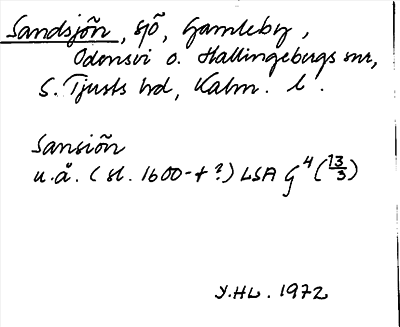 Sandsjön, sjö, Gamleby,
Odensvi o. Hallingebergs snr,
S. Tjusts hd, Kalm. l.
Sansiön
u.å. (sl. 1600-t ?) LSA G⁴ (13/3)
Y.HL. 1972